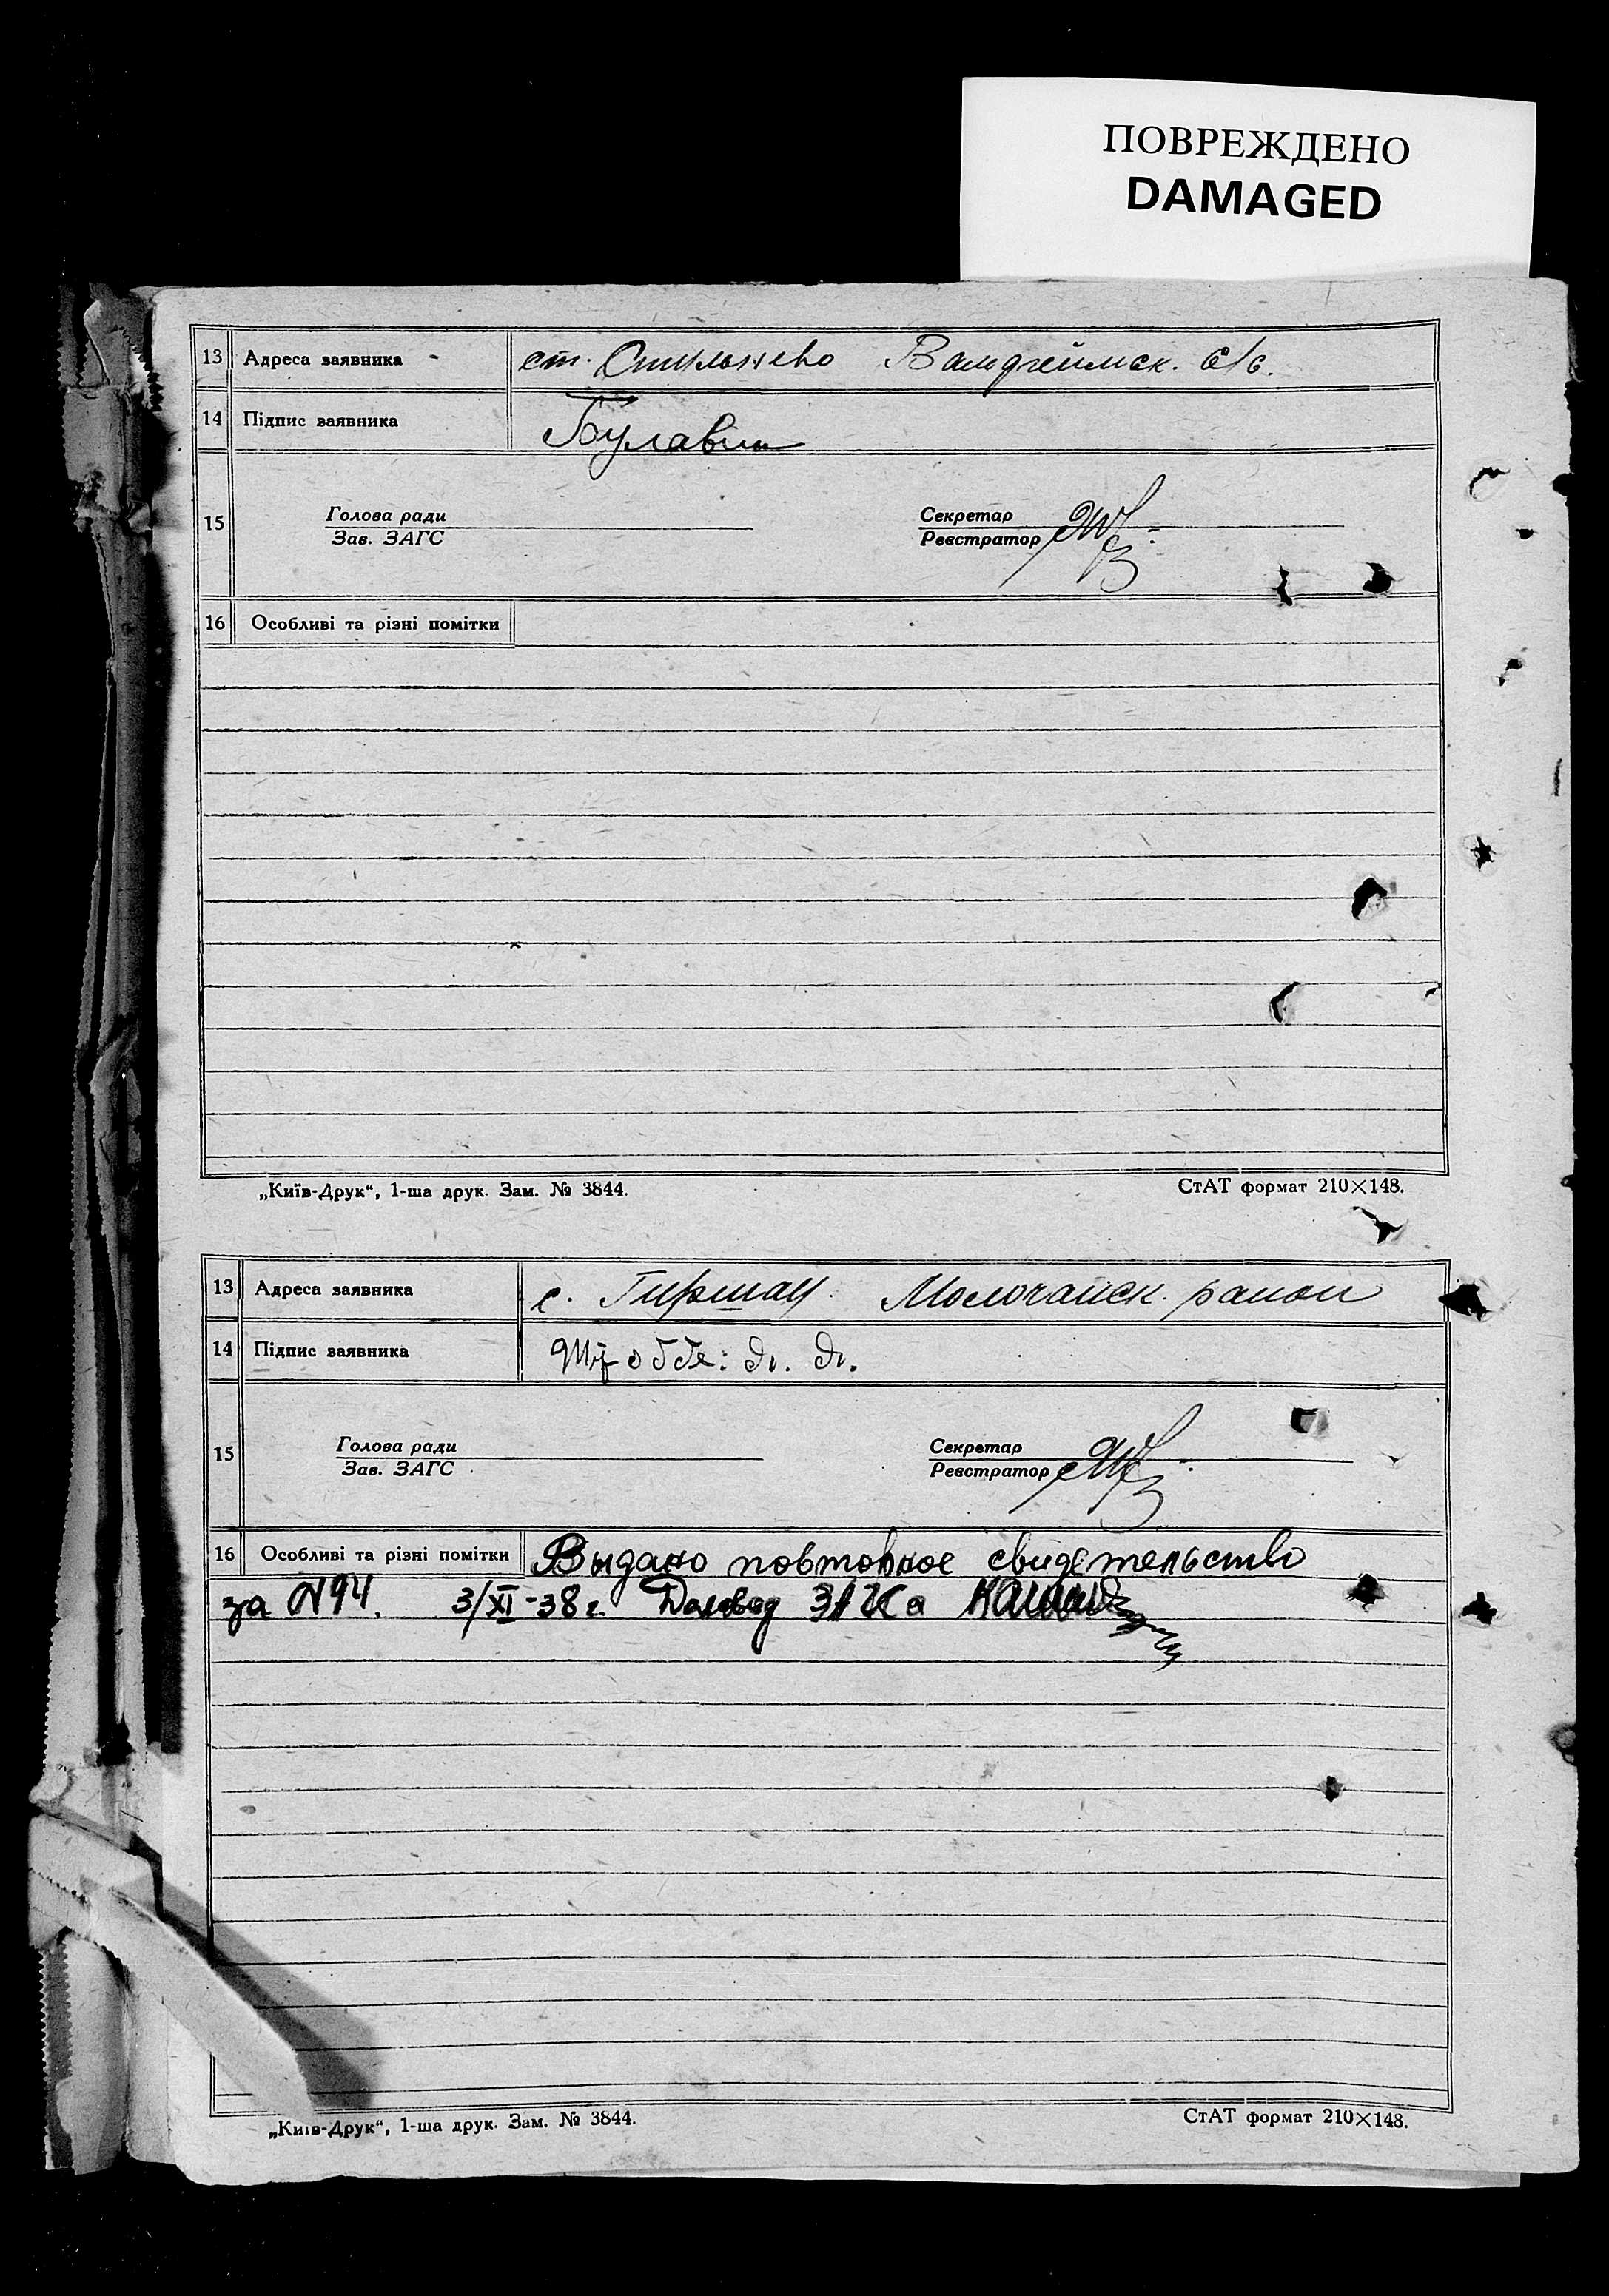 ПОВРЕЖДЕНО
DAMAGED
13 Адреса заявника ст. Стульнево Валдгеймск. с/с.
14 Підпис заявника Булавин
15 Голова ради Секретар
Зав. ЗАГС Реєстратор
16 Особливі та різні помітки
„Київ-Друк“, 1-ша друк. Зам. № 3844. СтАТ формат 210×148.
13 Адреса заявника с. Гиршау. Молочанск. район
14 Підпис заявника
15 Голова ради Секретар
Зав. ЗАГС Реєстратор
16 Особливі та різні помітки Выдано повторное свидетельство
за N94. 3/XI-38 г. Деловод ЗАГСа
„Київ-Друк“, 1-ша друк. Зам. № 3844. СтАТ формат 210×148.